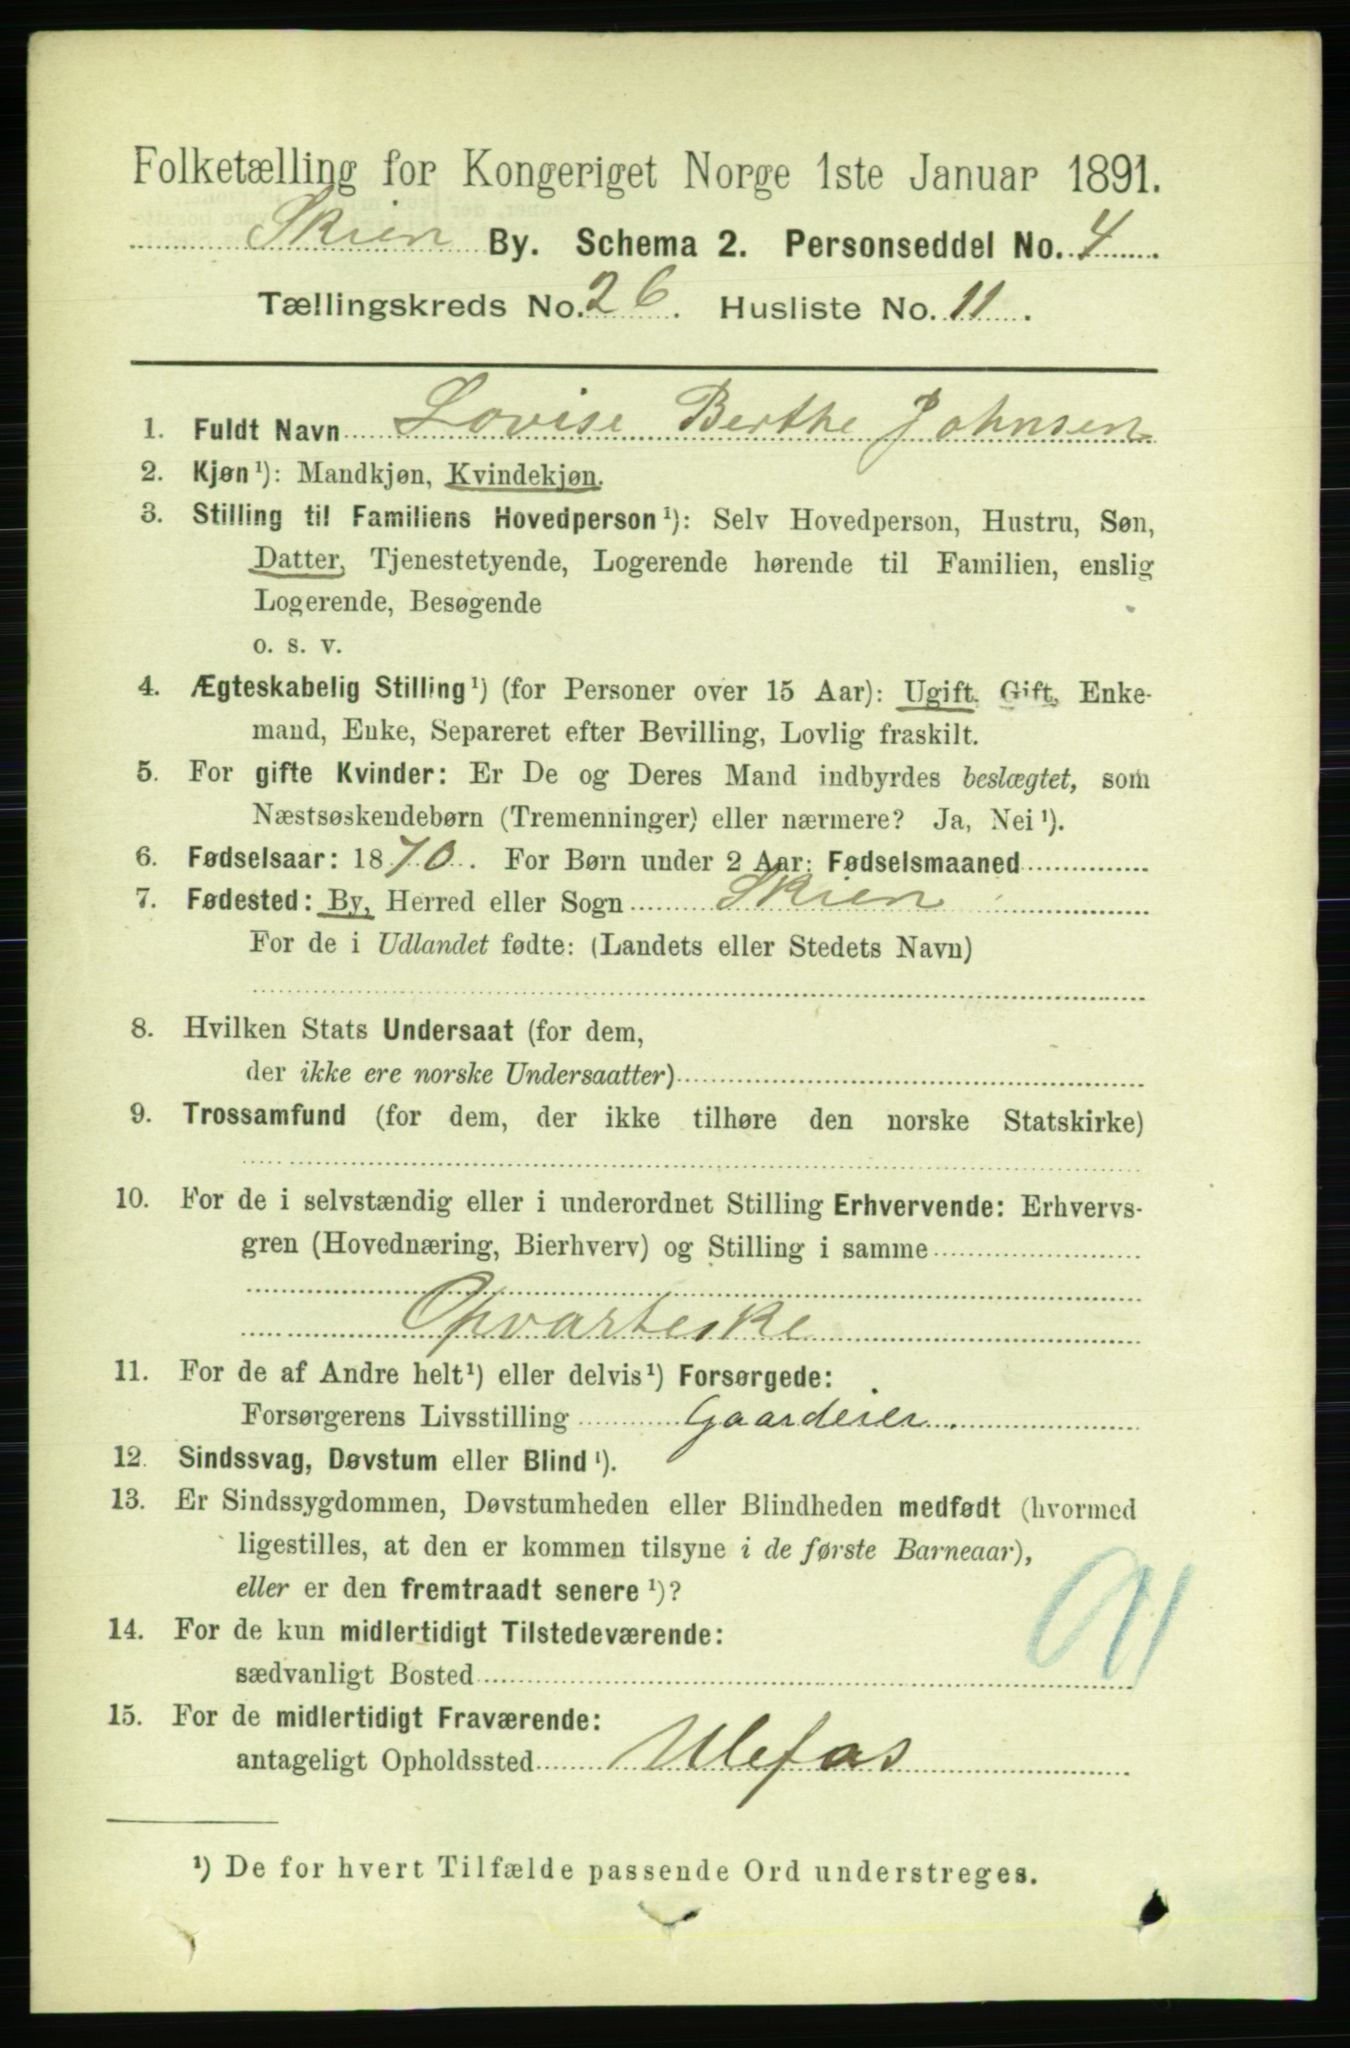 Folketælling for Kongeriget Norge 1ste Januar 1891.
Skien By. Schema 2. Personseddel No. 4
Tællingskreds No. 26. Husliste No. 11.
1. Fuldt Navn Lovise Berthe Johnsen
2. Kjøn¹): Mandkjøn, Kvindekjøn.
3. Stilling til Familiens Hovedperson¹): Selv Hovedperson, Hustru, Søn,
Datter, Tjenestetyende, Logerende hørende til Familien, enslig
Logerende, Besøgende
o. s. v.
4. Ægteskabelig Stilling¹) (for Personer over 15 Aar): Ugift, Gift, Enke-
mand, Enke, Separeret efter Bevilling, Lovlig fraskilt.
5. For gifte Kvinder: Er De og Deres Mand indbyrdes beslægtet, som
Næstsøskendebørn (Tremenninger) eller nærmere? Ja, Nei¹).
6. Fødselsaar: 1870. For Børn under 2 Aar: Fødselsmaaned
7. Fødested: By, Herred eller Sogn Skien
For de i Udlandet fødte: (Landets eller Stedets Navn)
8. Hvilken Stats Undersaat (for dem,
der ikke ere norske Undersaatter)
9. Trossamfund (for dem, der ikke tilhøre den norske Statskirke)
10. For de i selvstændig eller i underordnet Stilling Erhvervende: Erhvervs-
gren (Hovednæring, Bierhverv) og Stilling i samme
Opvarteske
11. For de af Andre helt¹) eller delvis¹) Forsørgede:
Forsørgerens Livsstilling Gaardeier.
12. Sindssvag, Døvstum eller Blind¹).
13. Er Sindssygdommen, Døvstumheden eller Blindheden medfødt (hvormed
ligestilles, at den er kommen tilsyne i de første Barneaar),
eller er den fremtraadt senere¹)?
14. For de kun midlertidigt Tilstedeværende:
sædvanligt Bosted
15. For de midlertidigt Fraværende:
antageligt Opholdssted Ulefos
¹) De for hvert Tilfælde passende Ord understreges.